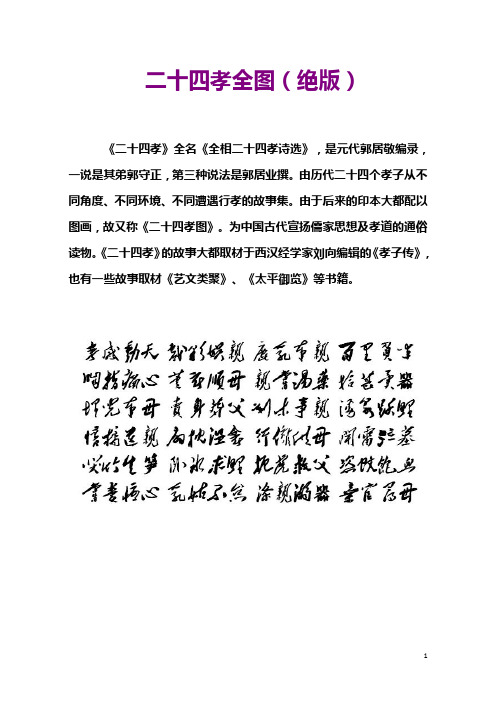 二十四孝全图（绝版）
《二十四孝》全名《全相二十四孝诗选》，是元代郭居敬编录，
一说是其弟郭守正，第三种说法是郭居业撰。由历代二十四个孝子从不
同角度、不同环境、不同遭遇行孝的故事集。由于后来的印本大都配以
图画，故又称《二十四孝图》。为中国古代宣扬儒家思想及孝道的通俗
读物。《二十四孝》的故事大都取材于西汉经学家刘向编辑的《孝子传》，
也有一些故事取材《艺文类聚》、《太平御览》等书籍。
孝感動天 戲彩娱親 鹿乳奉親 百里負米
啮指痛心 芦衣順母 親嘗湯藥 拾葚異器
埋兒奉母 賣身葬父 刻木事親 湧泉躍鯉
懷橘遺親 扇枕温衾 行傭供母 聞雷泣墓
哭竹生笋 卧冰求鯉 扼虎救父 恣蚊飽血
嘗糞憂心 乳姑不怠 滌親溺器 棄官尋母
1